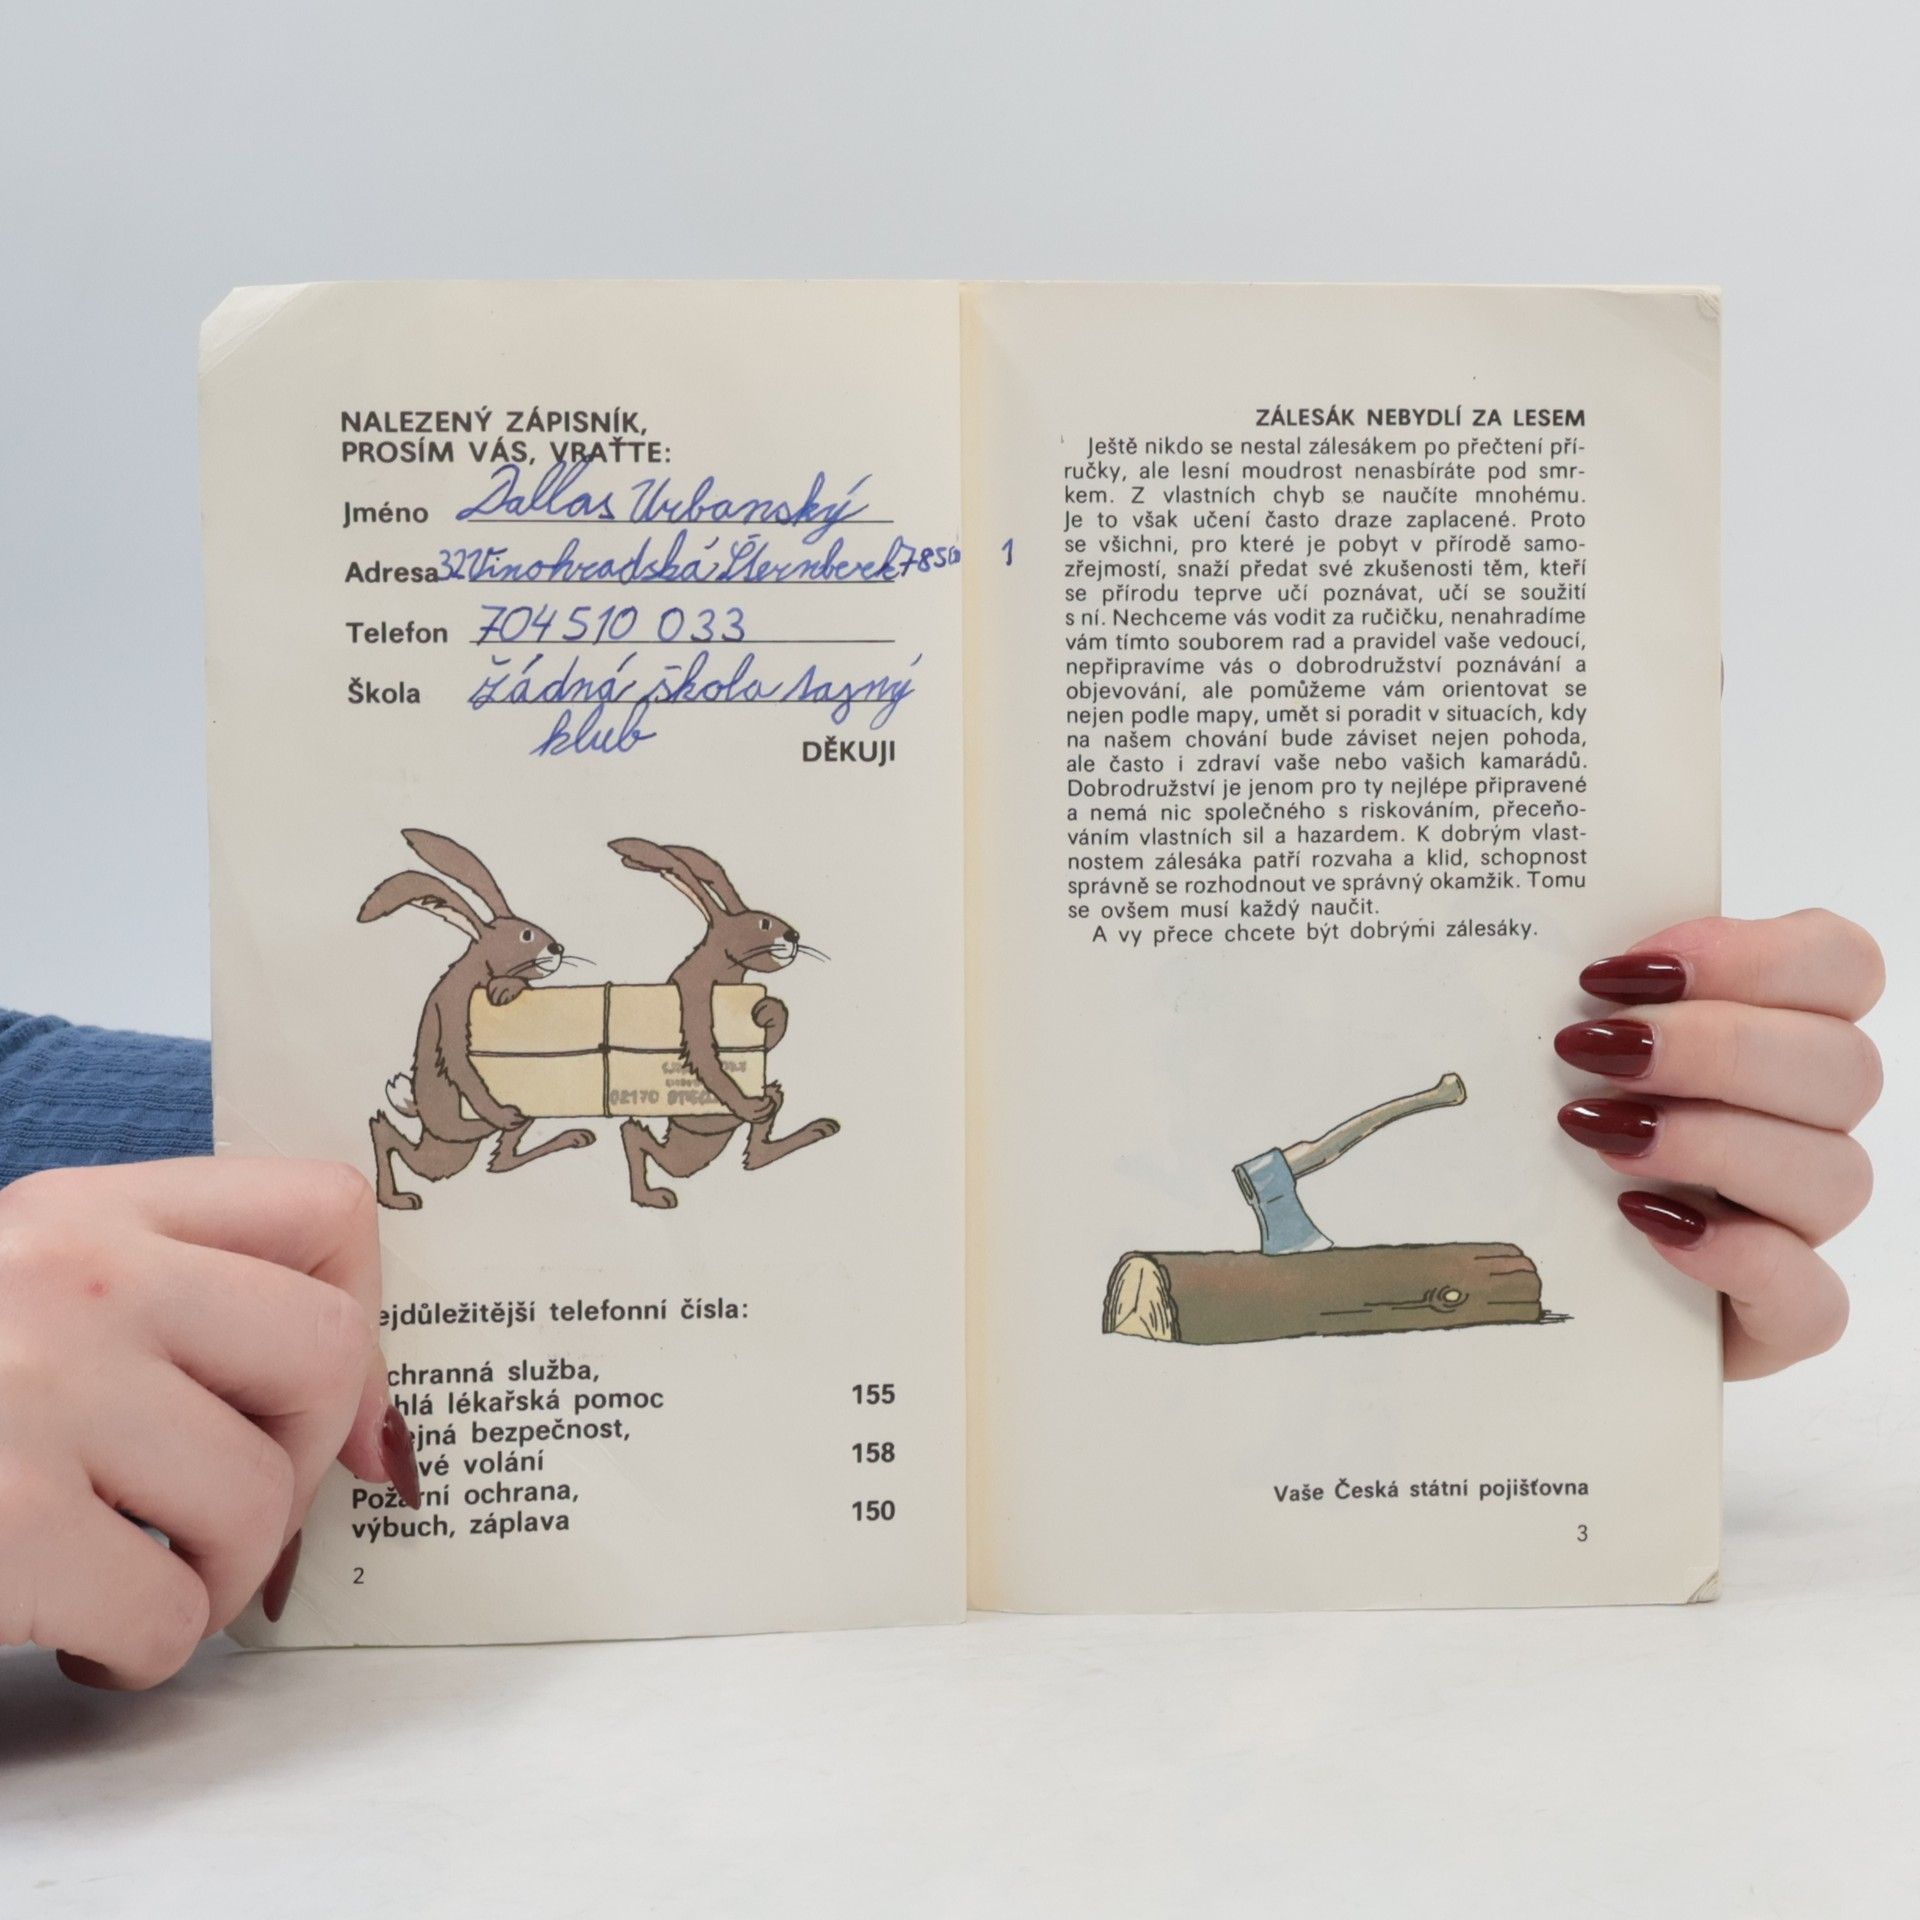 NALEZENÝ ZÁPISNÍK,
PROSÍM VÁS, VRAŤTE:
Jméno Dallas Urbanský
Adresa 32 Vinohradská Šternberk 785 01
Telefon 704 510 033
Škola žádná škola tajný
klub
DĚKUJI
02170
ejdůležitější telefonní čísla:
chranná služba,
hlá lékařská pomoc 155
ejná bezpečnost,
vé volání 158
Požární ochrana,
výbuch, záplava 150
2
ZÁLESÁK NEBYDLÍ ZA LESEM
Ještě nikdo se nestal zálesákem po přečtení pří-
ručky, ale lesní moudrost nenasbíráte pod smr-
kem. Z vlastních chyb se naučíte mnohému.
Je to však učení často draze zaplacené. Proto
se všichni, pro které je pobyt v přírodě samo-
zřejmostí, snaží předat své zkušenosti těm, kteří
se přírodu teprve učí poznávat, učí se soužití
s ní. Nechceme vás vodit za ručičku, nenahradíme
vám tímto souborem rad a pravidel vaše vedoucí,
nepřipravíme vás o dobrodružství poznávání a
objevování, ale pomůžeme vám orientovat se
nejen podle mapy, umět si poradit v situacích, kdy
na našem chování bude záviset nejen pohoda,
ale často i zdraví vaše nebo vašich kamarádů.
Dobrodružství je jenom pro ty nejlépe připravené
a nemá nic společného s riskováním, přeceňo-
váním vlastních sil a hazardem. K dobrým vlast-
nostem zálesáka patří rozvaha a klid, schopnost
správně se rozhodnout ve správný okamžik. Tomu
se ovšem musí každý naučit.
A vy přece chcete být dobrými zálesáky.
Vaše Česká státní pojišťovna
3